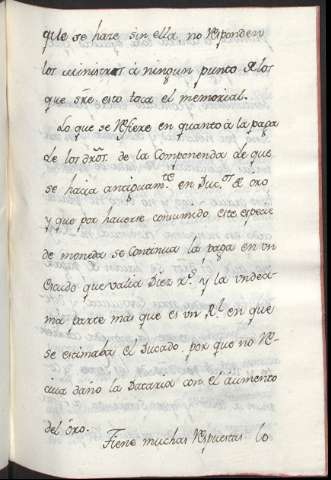 que se haze sin ella, no responden
los ministros à ningun punto de los
que sre. esto toca el memorial.
Lo que se refiere en quanto à la paga
de los dros. de la Componenda de que
se hacia antiguamte. en Ducos. de oro
y que por haverse consumido esta especie
de moneda se continua la paga en un
Escudo que valia Diez rs. y la undezi-
ma parte mas que es un Rl. en que
se estimaba el Ducado, por que no re-
civa daño la Dataria con el aumento
del Oro.
Tiene muchas respuestas lo